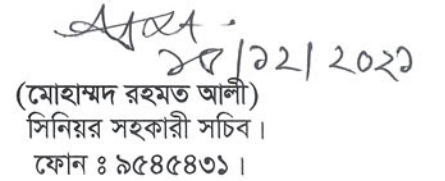 ১৫/১২/২০২১
(মোহাম্মদ রহমত আলী)
সিনিয়র সহকারী সচিব।
ফোন ঃ ৯৫৪৫৪৩১।